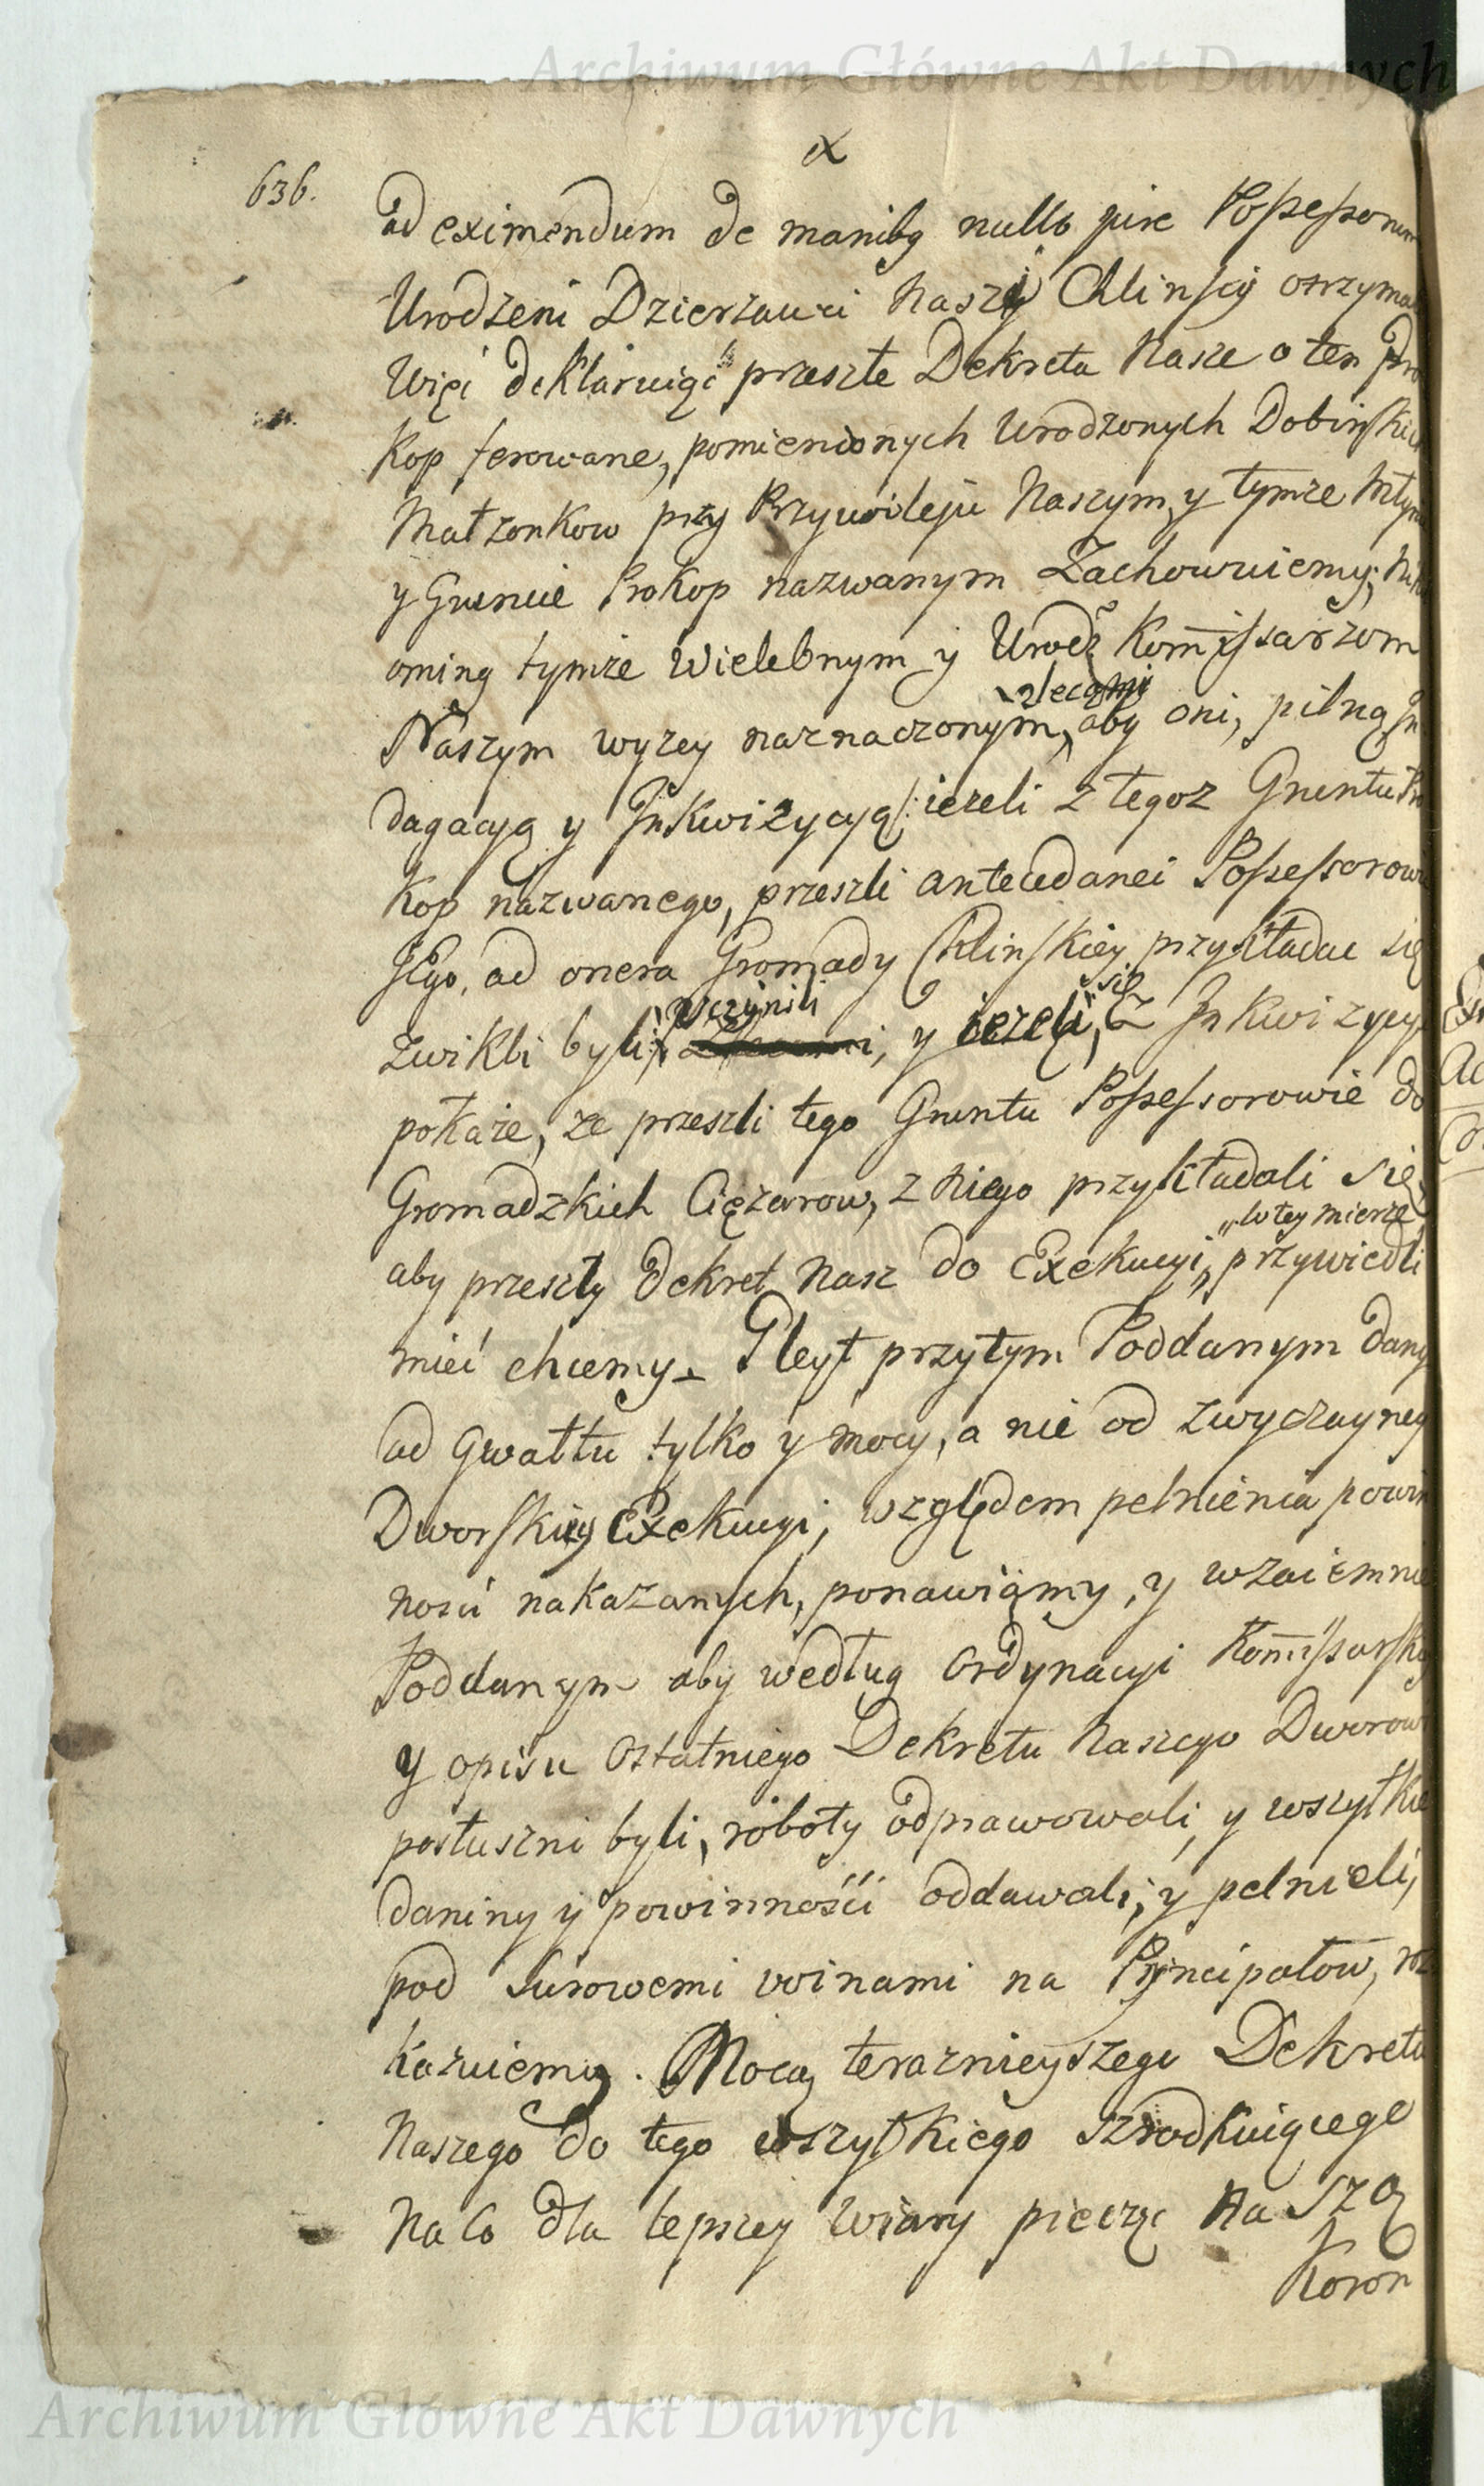 Archiwum Główne Akt Dawnych
636.
ad eximendum de manibg nullo jure Possessorum
Urodzeni Dzierzawci Naszy Chlinscy otrzymal
Więc deklaruiąc przeszłe Dekreta Nasze o ten Pro
kop ferowane, pomienionych Urodzonych Dobinskich
Małzonkow przy Przywileju Naszym, y tymze Młyn
y Gruncie Prokop nazwanym Zachowuiemy;
oming tymże Wielebnym y Urodz Kommissarzom
zlecamy
Naszym wyzey naznaczonym, aby oni, pilną In
dagacyą y Inkwizycyą /: iezeli z tegoz Gruntu Pro
kop nazwanego, przeszli antecedanei Possessorowie
Jego, ad onera Gromady Chlinskiey przykładac się
uczynili
się
zwikli byli, y iezeli, z Inkwizycyi
pokaże, ze przeszli tego Gruntu Possessorowie do
Gromadzkich Ciężarow, z niego przykładali się
w tey mierze
aby przeszły Dekret Nasz do Exekucyi, przywiedli
mieć chcemy. Gleyt przytym Poddanym dany
od Gwałtu tylko y mocy, a nie od zwyczayney
Dworskiey Exekucyi, względem pełnienia powin
nosci nakazanych, ponawiamy, y wzaiemnie
Poddanym aby według Ordynacyi Kommissarskiy
y opisu Ostatniego Dekretu Naszego Dworowi
posłuszni byli, roboty odprawowali, y wszytkie
daniny y powinnośći oddawali, y pełnieli,
pod surowemi winami na Pryncipałow, roz
kazuiemy. Mocą teraznieyszego Dekretu
Naszego do tego wszytkiego szrodkuiącego
Na Co dla lepszey Wiary pieczęc Naszą
Koron
Archiwum Główne Akt Dawnych